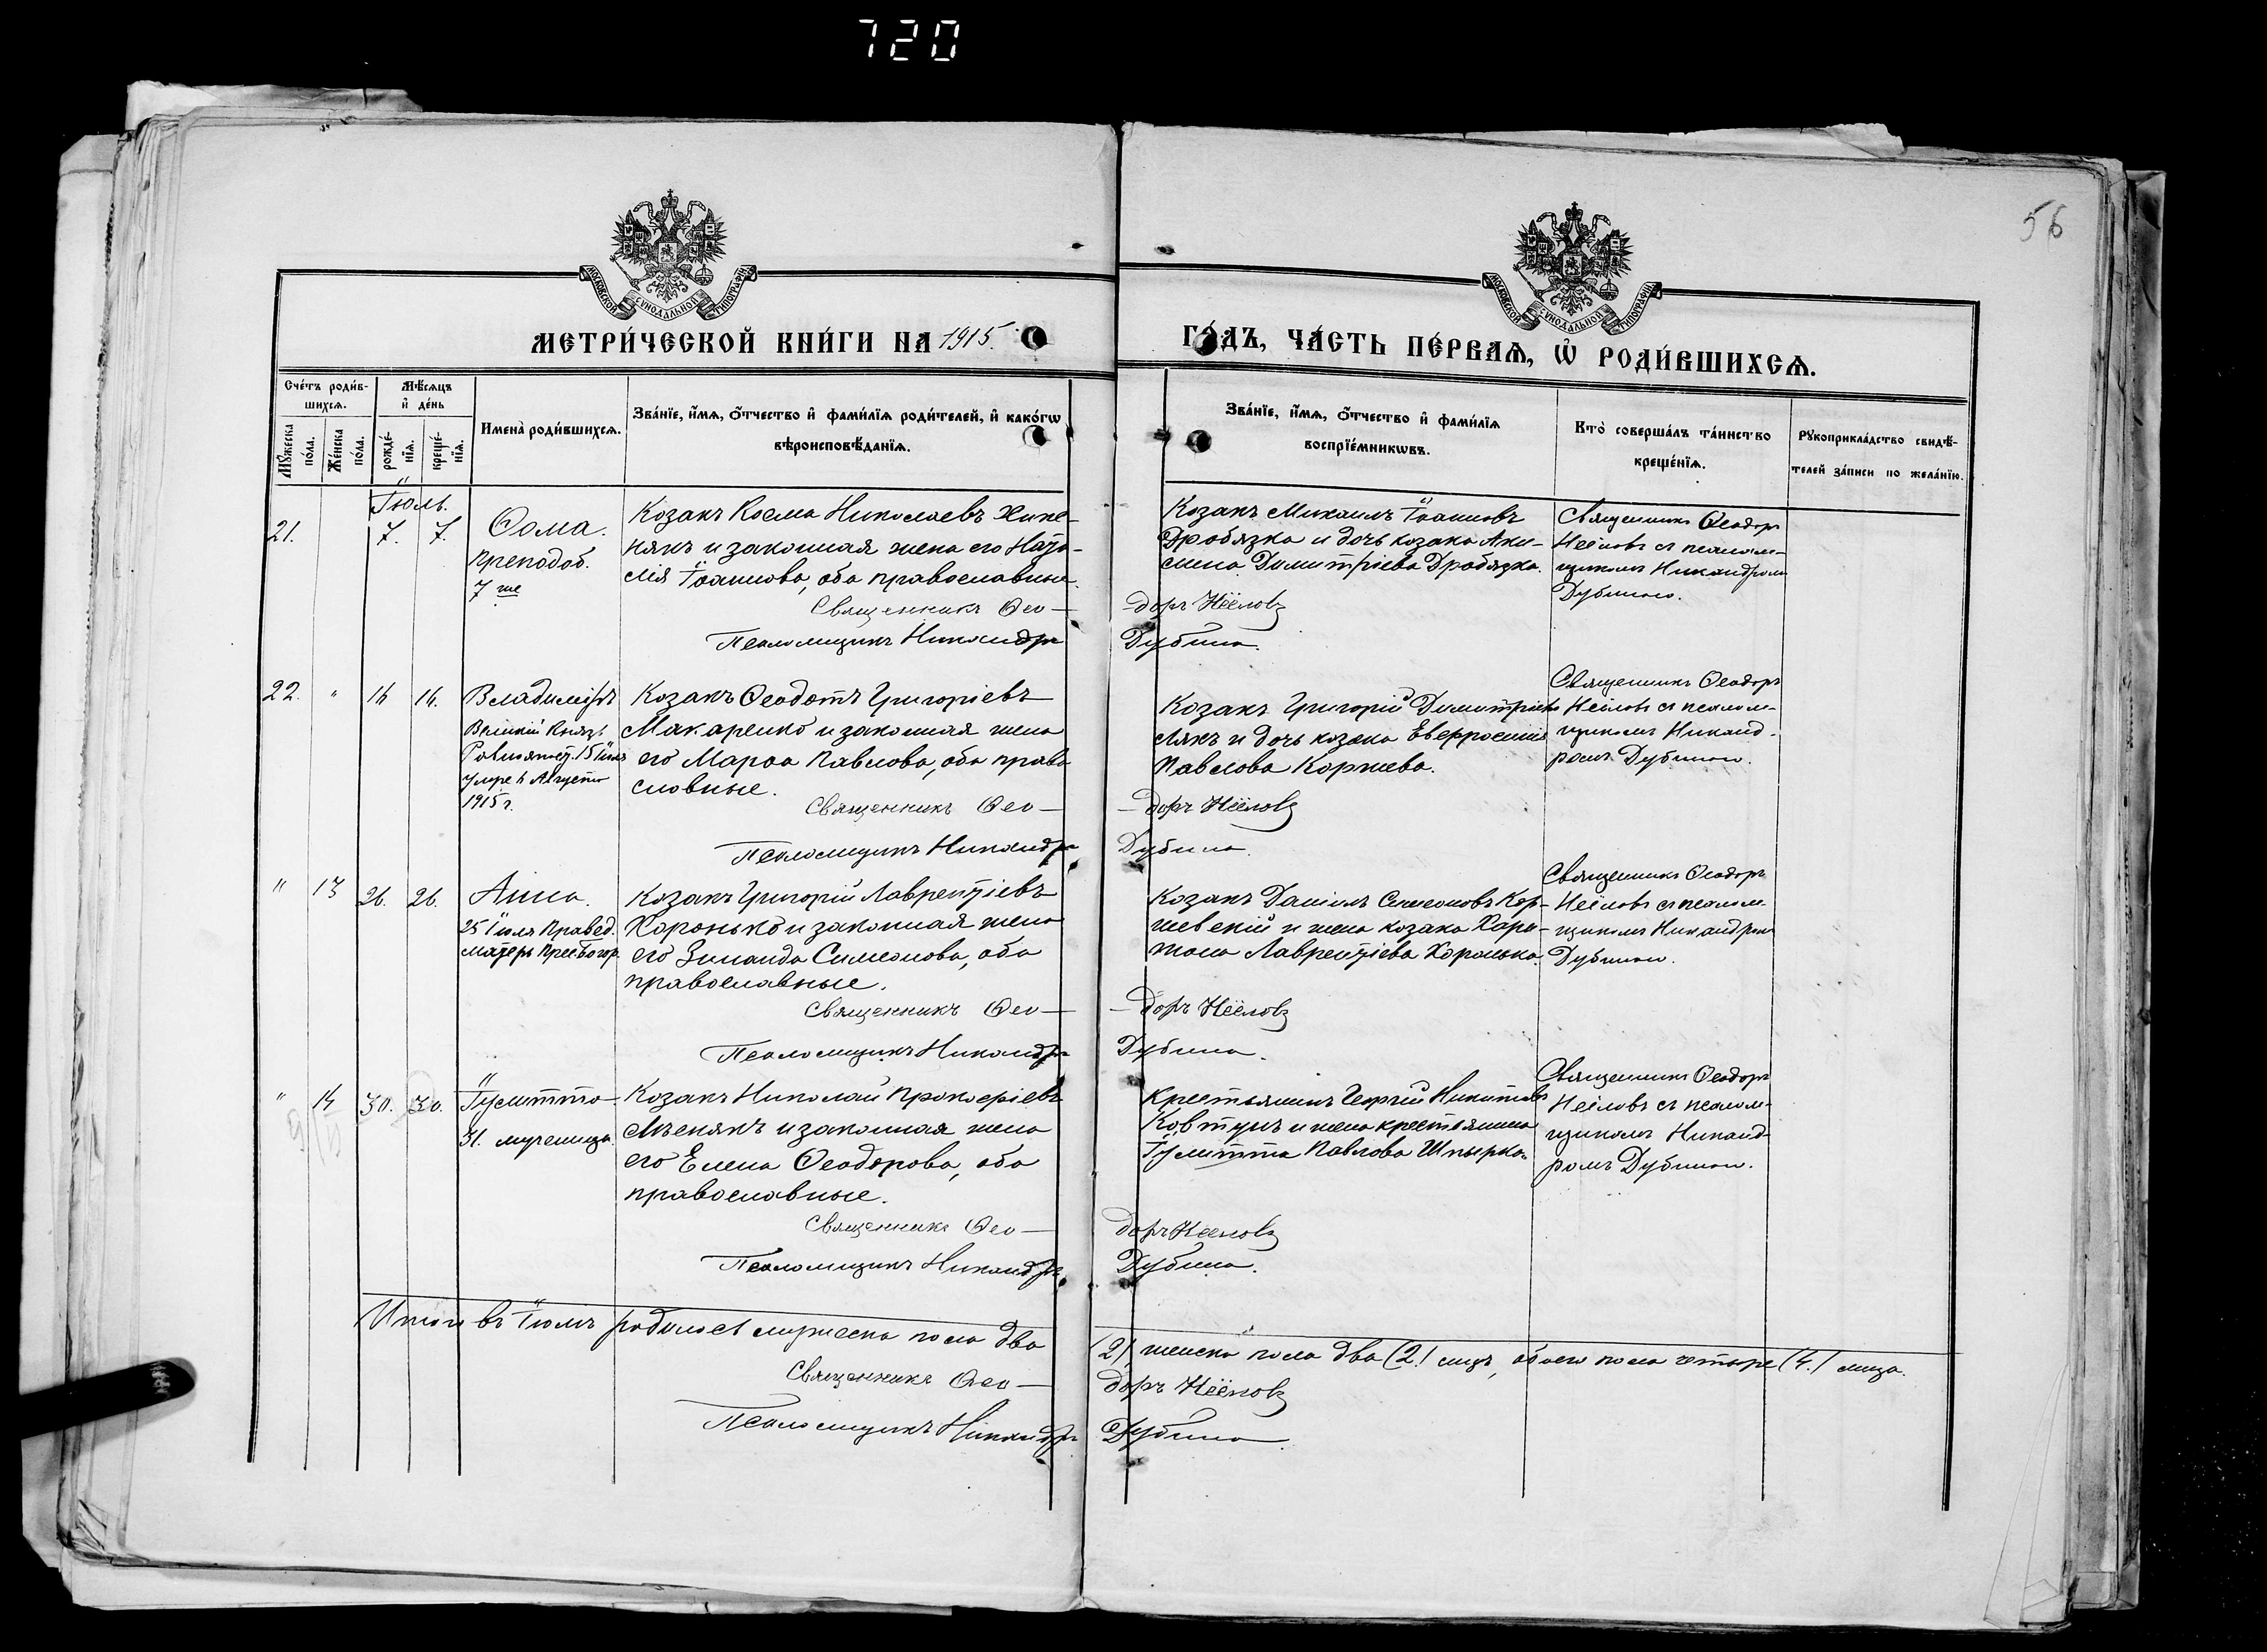 720
56
МОСКОВСКОЙ СѴНОДАЛЬНОЙ ТИПОГРАФІИ
МОСКОВСКОЙ СѴНОДАЛЬНОЙ ТИПОГРАФІИ
МЕТРИ́ЧЕСКОЙ КНИ́ГИ НА 1915.
ГО́ДЪ, ЧА́СТЬ ПЕ́РВАѦ, Ѡ҆ РОДИ́ВШИХСѦ.
Сче́тъ роди́в-
шихсѧ.
Мꙋ́жеска
по́ла.
Же́нска
по́ла.
Мѣ́сѧцъ
и҆ де́нь
рожде́-
нїѧ.
креще́-
нїѧ.
Имена̀ роди́вшихсѧ.
Зва́нїе, и҆́мѧ, ѻ҆́тчество и҆ фами́лїѧ роди́телей, и҆ како́гѡ
вѣроисповѣ́данїѧ.
Зва́нїе, и҆́мѧ, ѻ҆́тчество и҆ фами́лїѧ
воспрїе́мникѡвъ.
Кто̀ соверша́лъ та́инство
креще́нїѧ.
Рꙋкоприкла́дство свидѣ́-
телей за́писи по жела́нїю.
Іюль.
21.
7.
7.
Ѳома.
Преподоб.
7 же
Козакъ Косма Николаевъ Хиже-
някъ и законная жена его Ната-
лія Іоаннова, оба православные.
Священникъ Ѳео-
Псаломщикъ Никандръ
Козакъ Михаилъ Іоанновъ
Дробязка и дочь козака Аки-
лина Димитріева Дробязка.
-доръ Неёловъ
Дубина.
Священникъ Ѳеодоръ
Неёловъ съ псалом-
щикомъ Никандромъ
Дубиною.
22.
"
14
14.
Владиміръ
Великій Князь
Равноапост. 15 Іюля
Умре Августа
1915 г.
Козакъ Ѳеодотъ Григоріевъ
Макаренко и законная жена
его Марѳа Павлова, оба право
славные.
Священникъ Ѳео-
Псаломщикъ Никандръ
Козакъ Григорій Димитріевъ
Лякъ и дочь козака Евфросинія
Павлова Коржева.
-доръ Неёловъ
Дубина.
Священникъ Ѳеодоръ
Неёловъ съ псалом-
щикомъ Никанд-
ромъ Дубиною.
"
13
26.
26.
Анна.
25 Іюля Правед.
матерь Пресбогор.
Козакъ Григорій Лаврентіевъ
Хоронько и законная жена
его Зинаида Симеонова, оба
православные.
Священникъ Ѳео-
Псаломщикъ Никандръ
Козакъ Даніилъ Симеоновъ Кор-
жевскій и жена козака Хари-
тона Лаврентіева Хоронько.
-доръ Неёловъ
Дубина.
Священникъ Ѳеодоръ
Неёловъ съ псалом
щикомъ Никандромъ
Дубиною.
"
14
30.
30.
Іулитта-
31. мученица.
Козакъ Николай Прокофіевъ
и законная жена
его Елена Ѳеодорова, оба
православные.
Священникъ Ѳео-
Псаломщикъ Никандръ
Крестьянинъ Георгій Никитовъ
Ковтунъ и жена крестьянина
Іулитта Павлова Шпырко.
доръ Неёловъ
Дубина.
Священникъ Ѳеодоръ
Неёловъ съ псалом-
щикомъ Никанд-
ромъ Дубиною.
Итого въ Іюлѣ родилось мужеска пола два
(2) женска пола два (2.) лицъ, обоего пола четыре (4.) лица.
Священникъ Ѳео-
доръ Неёловъ
Псаломщикъ Никандръ
Дубина.